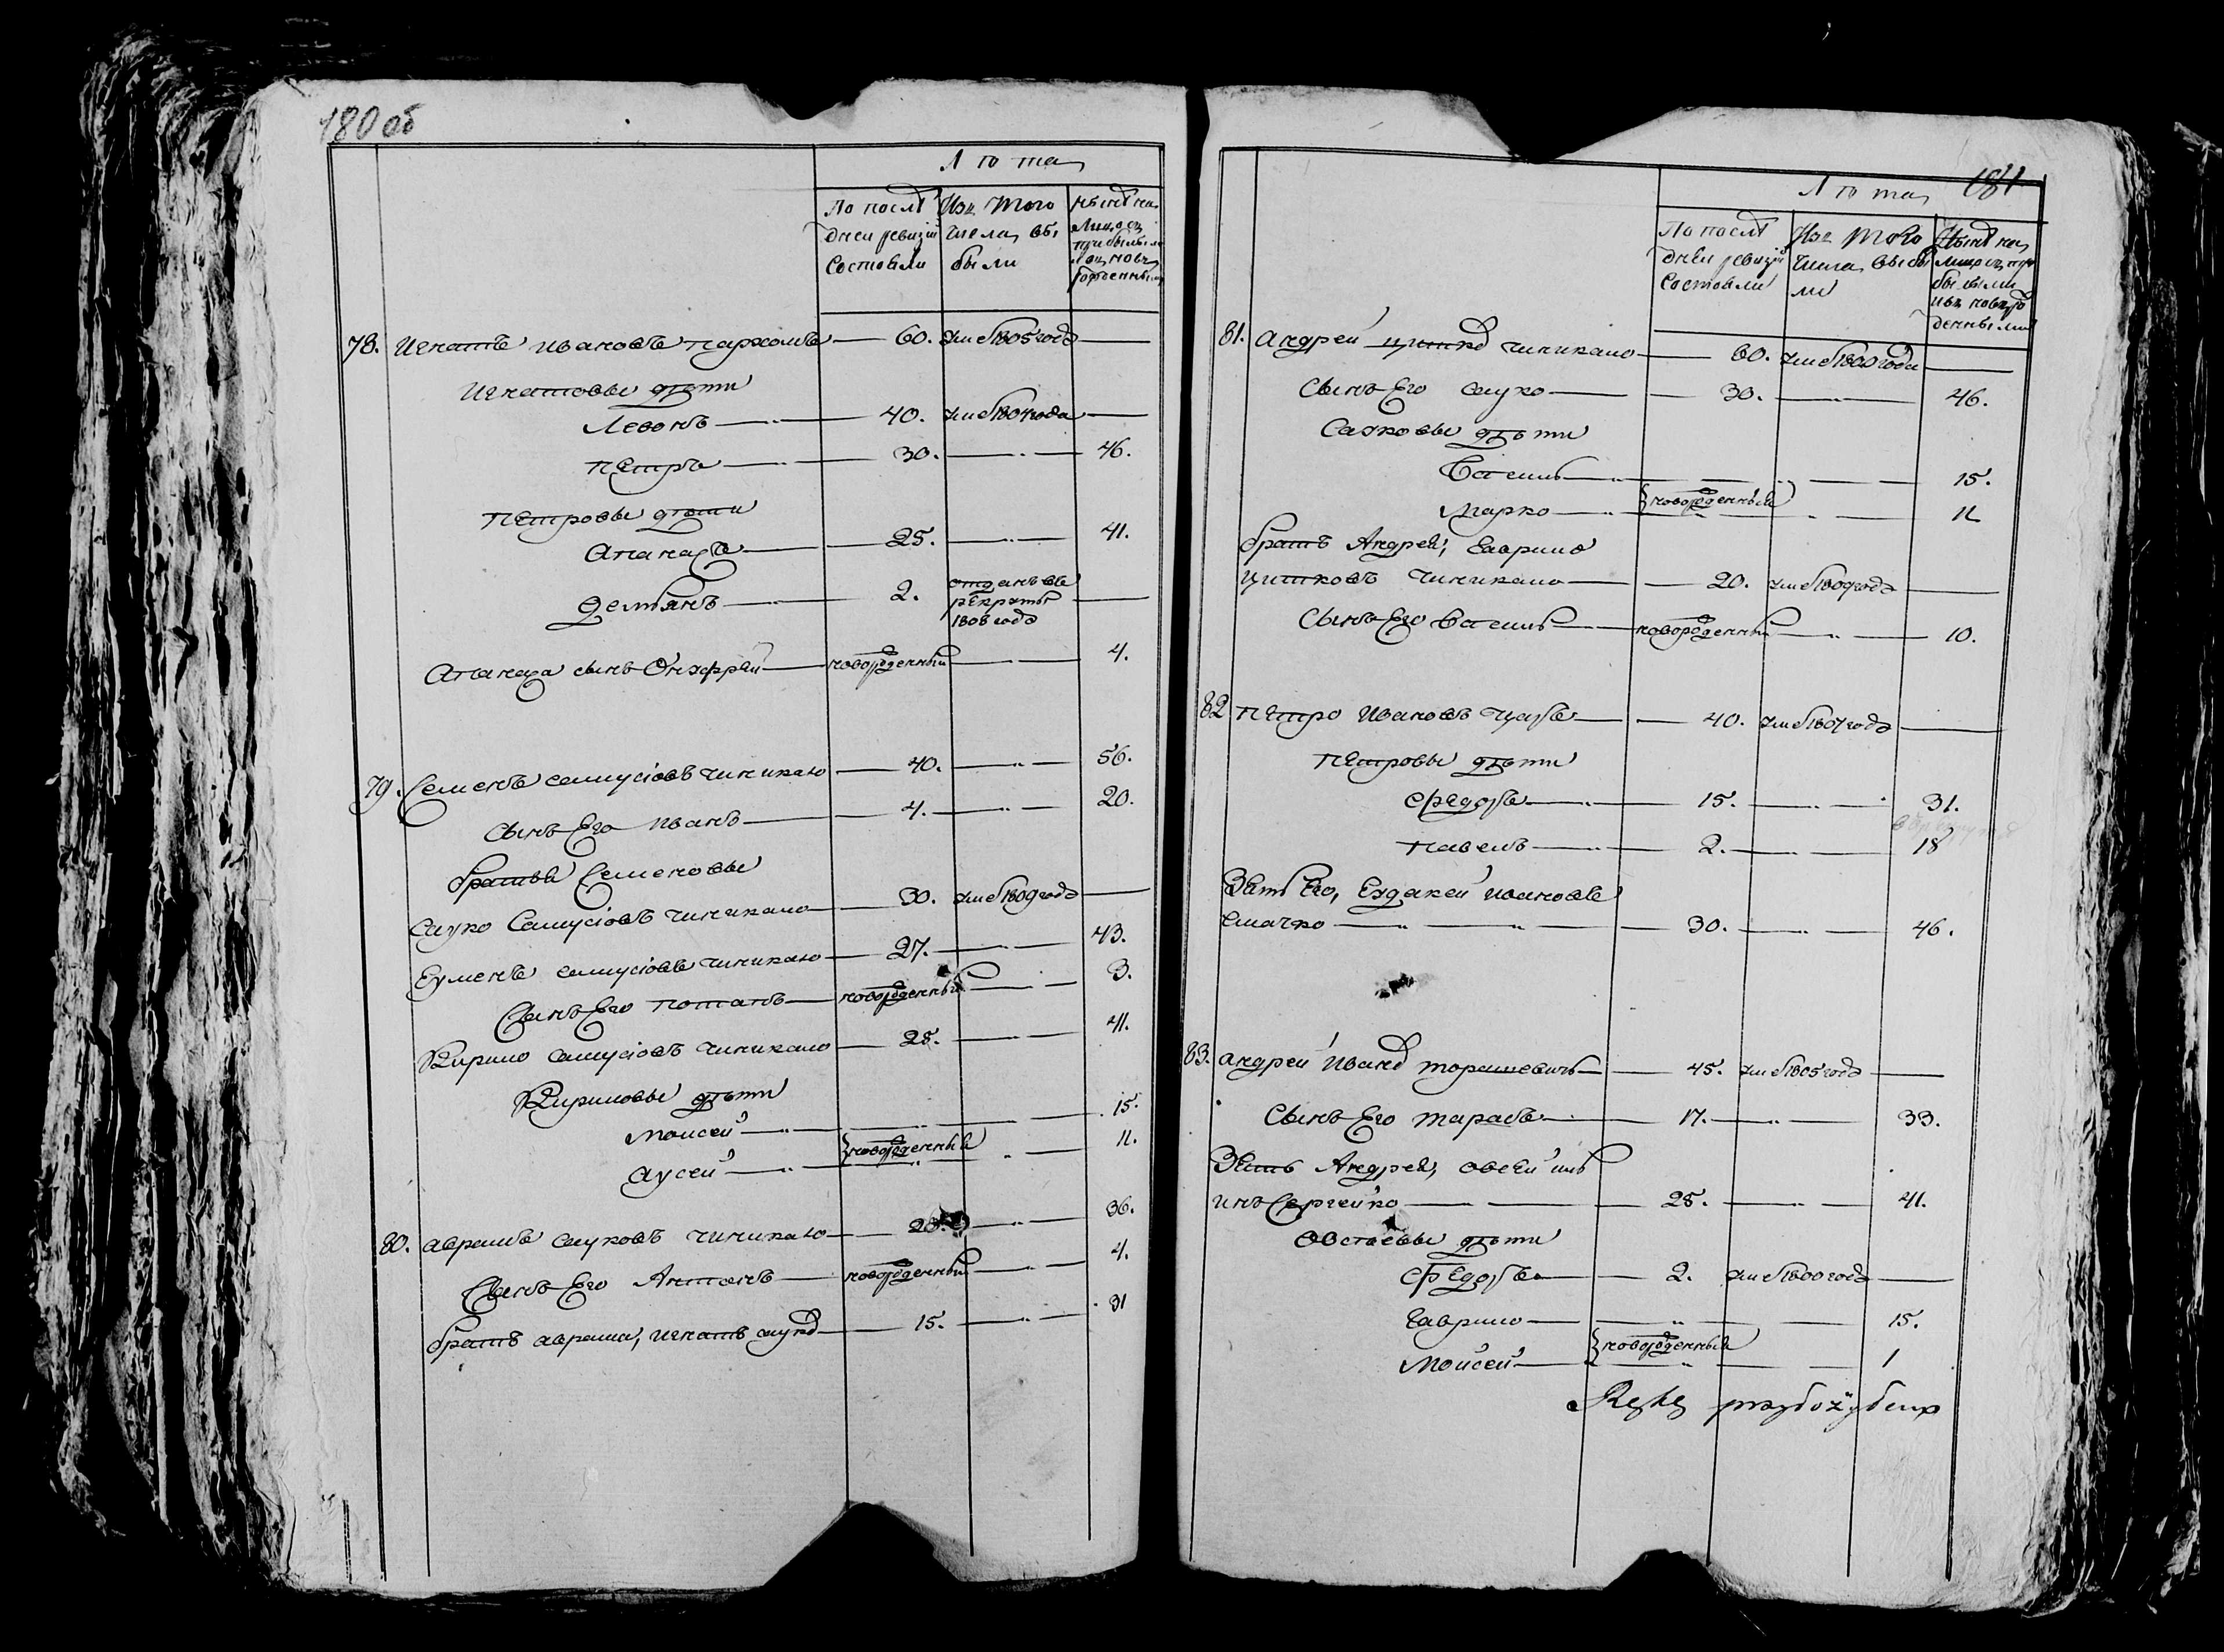 180 об
Лѣта
По послѣ
дней ревизіи
состояли
Изъ того
числа вы
были
Нынѣ на
лицо съ
прибылы
ми новъ
рожденными
78. Игнатъ Ивановъ пархомъ — 60. Умеб 1805 года —
Игнатовы дѣти
Левонъ — 40. Умеб 1804 года —
Петръ — 30. — 46.
Петровы дѣти
Апанасъ — 25. — 41.
Демьянъ — 2. отданъ въ рекруты 1808 года —
Апанаса сынъ Онуфрей — новорожденный — 4.
79. Семенъ самусіовъ чичикало — 40. — 56.
Сынъ Его Иванъ — 4. — 20.
братья Семеновы
Сауко Самусіовъ чичикало — 30. Умеб 1809 года —
Еуменъ самусіовъ чичикало — 27. — 43.
Сынъ Его потапъ — новорожденный — 3.
Кирило самусіовъ чичикало — 25. — 41.
Кириловы дѣти
Моисей — 15.
новорожденный
аусей — 11.
80. аврамъ сауковъ чичикало — 20. — 36.
Сынъ Его Антонъ — новорожденный — 4.
братъ аврама, игнатъ — 15. — 31
181
Лѣта
По послѣ
дней ревизіи
состояли
Изъ того
числа выбы
ли
Нынѣ на
лицо съ при
былыми
изъ новъ ро
денными
81. Андрей чичикало — 60. Умеб 1800 года —
Сынъ Его сауко — 30. — 46.
Сауковы дѣти
Василь — 15.
новорожденный
Марко — 11
братъ Андрея, Гаврило
цитковъ чичикало — 20. Умеб 1809 года —
Сынъ Его Василь — новорожденный — 10.
82 Петро Ивановъ — 40. Умеб 1807 года —
Петровы дѣти
Федоръ — 15. — 31.
Павелъ — 2. — 18
Зять Его, Еудакей Ивановъ
— 30. — 46.
83. андрей Иванов торашевичъ — 45. Умеб 1805 года —
Сынъ Его Тарасъ — 17. — 33.
Зять Андрея, овсей
инъ Сергейко — 25. — 41.
Овсеевы дѣти
Федоръ — 2. Умеб 1800 года —
Гаврило — 15.
новорожденный
Мойсей — 1